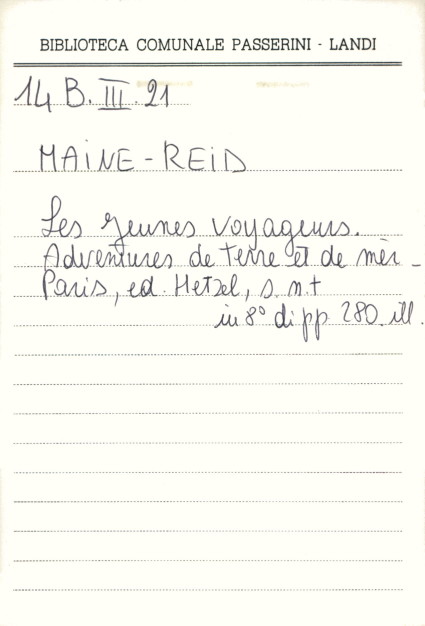 BIBLIOTECA COMUNALE PASSERINI - LANDI
14 B. III. 21
MAINE - REID
Les jeunes voyageurs.
Adventures de terre et de mèr -
Paris, ed. Hetzel, s. n. t
in 8° di pp 280. ill.